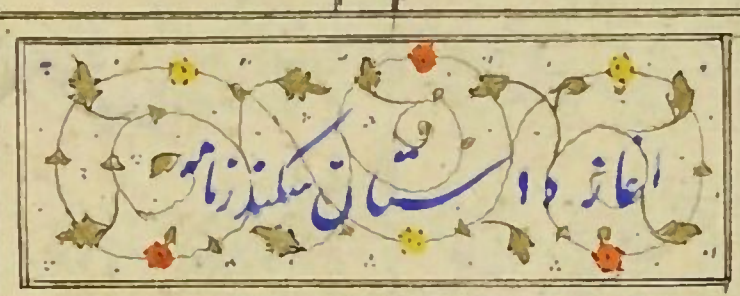 اغاز داستان سکندرنامه